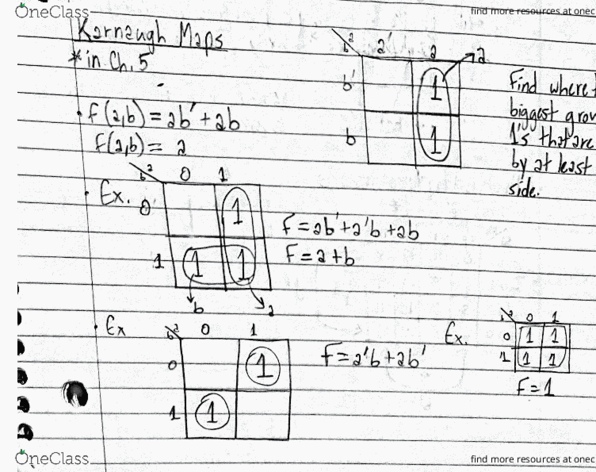 OneClass
find more resources at onec
Karnaugh Maps
* in Ch. 5
f(a,b) = ab' + ab
f(a,b) = a
b a a' a → a
b' 1
b 1
Find where
biggest grou
1's that are
by at least
side.
Ex. b a 0 1
0 1
1 1 1
b a
F = ab' + a'b + ab
F = a + b
Ex b a 0 1
0 1
1 1
F = a'b + ab'
Ex. 0 1
0 1 1
1 1 1
F = 1
OneClass
find more resources at onec